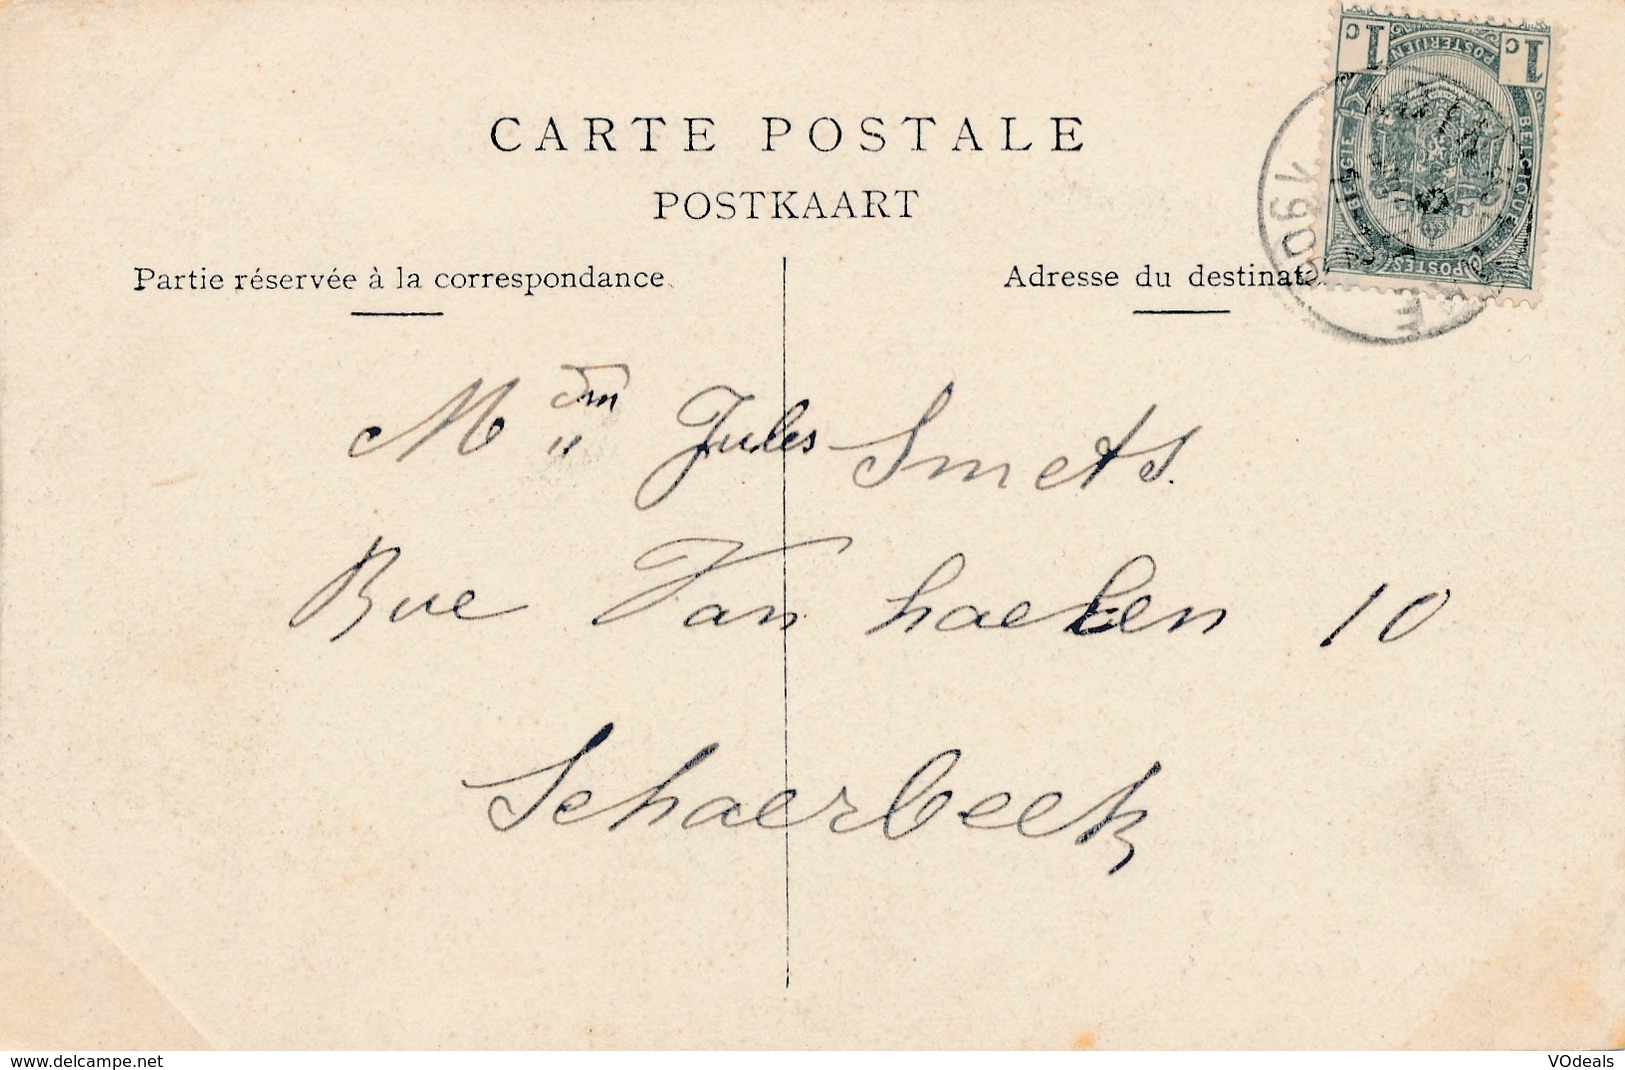 CARTE POSTALE
POSTKAART
Partie réservée à la correspondance
Adresse du destinat
1c 1c
POSTERIJEN
BELGIE BELGIQUE
POSTES
1906
Mme Jules Smets.
Rue Van haelen 10
Schaerbeek
www.delcampe.net
VOdeals